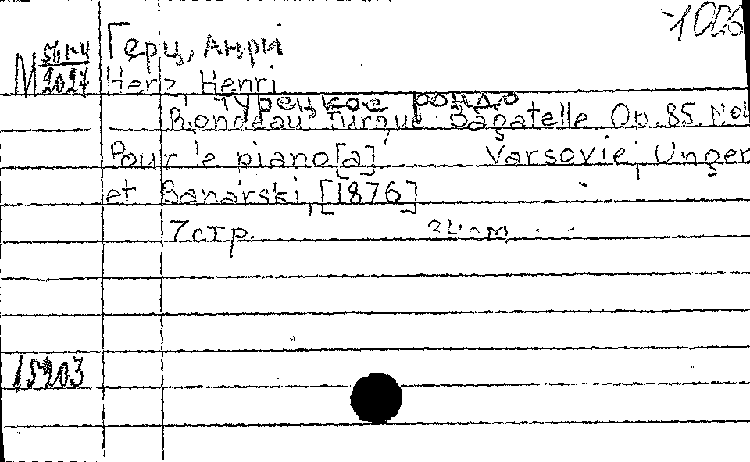 -1006
Герц, Анри
M 2027
Herz Henri
Турецкое рондо
Rondeau Turque Bagatelle Op. 85. No1
Pour le piano[a] Varsovie, Unger
et Banarski, [1876]
7стр. 34см.
15203